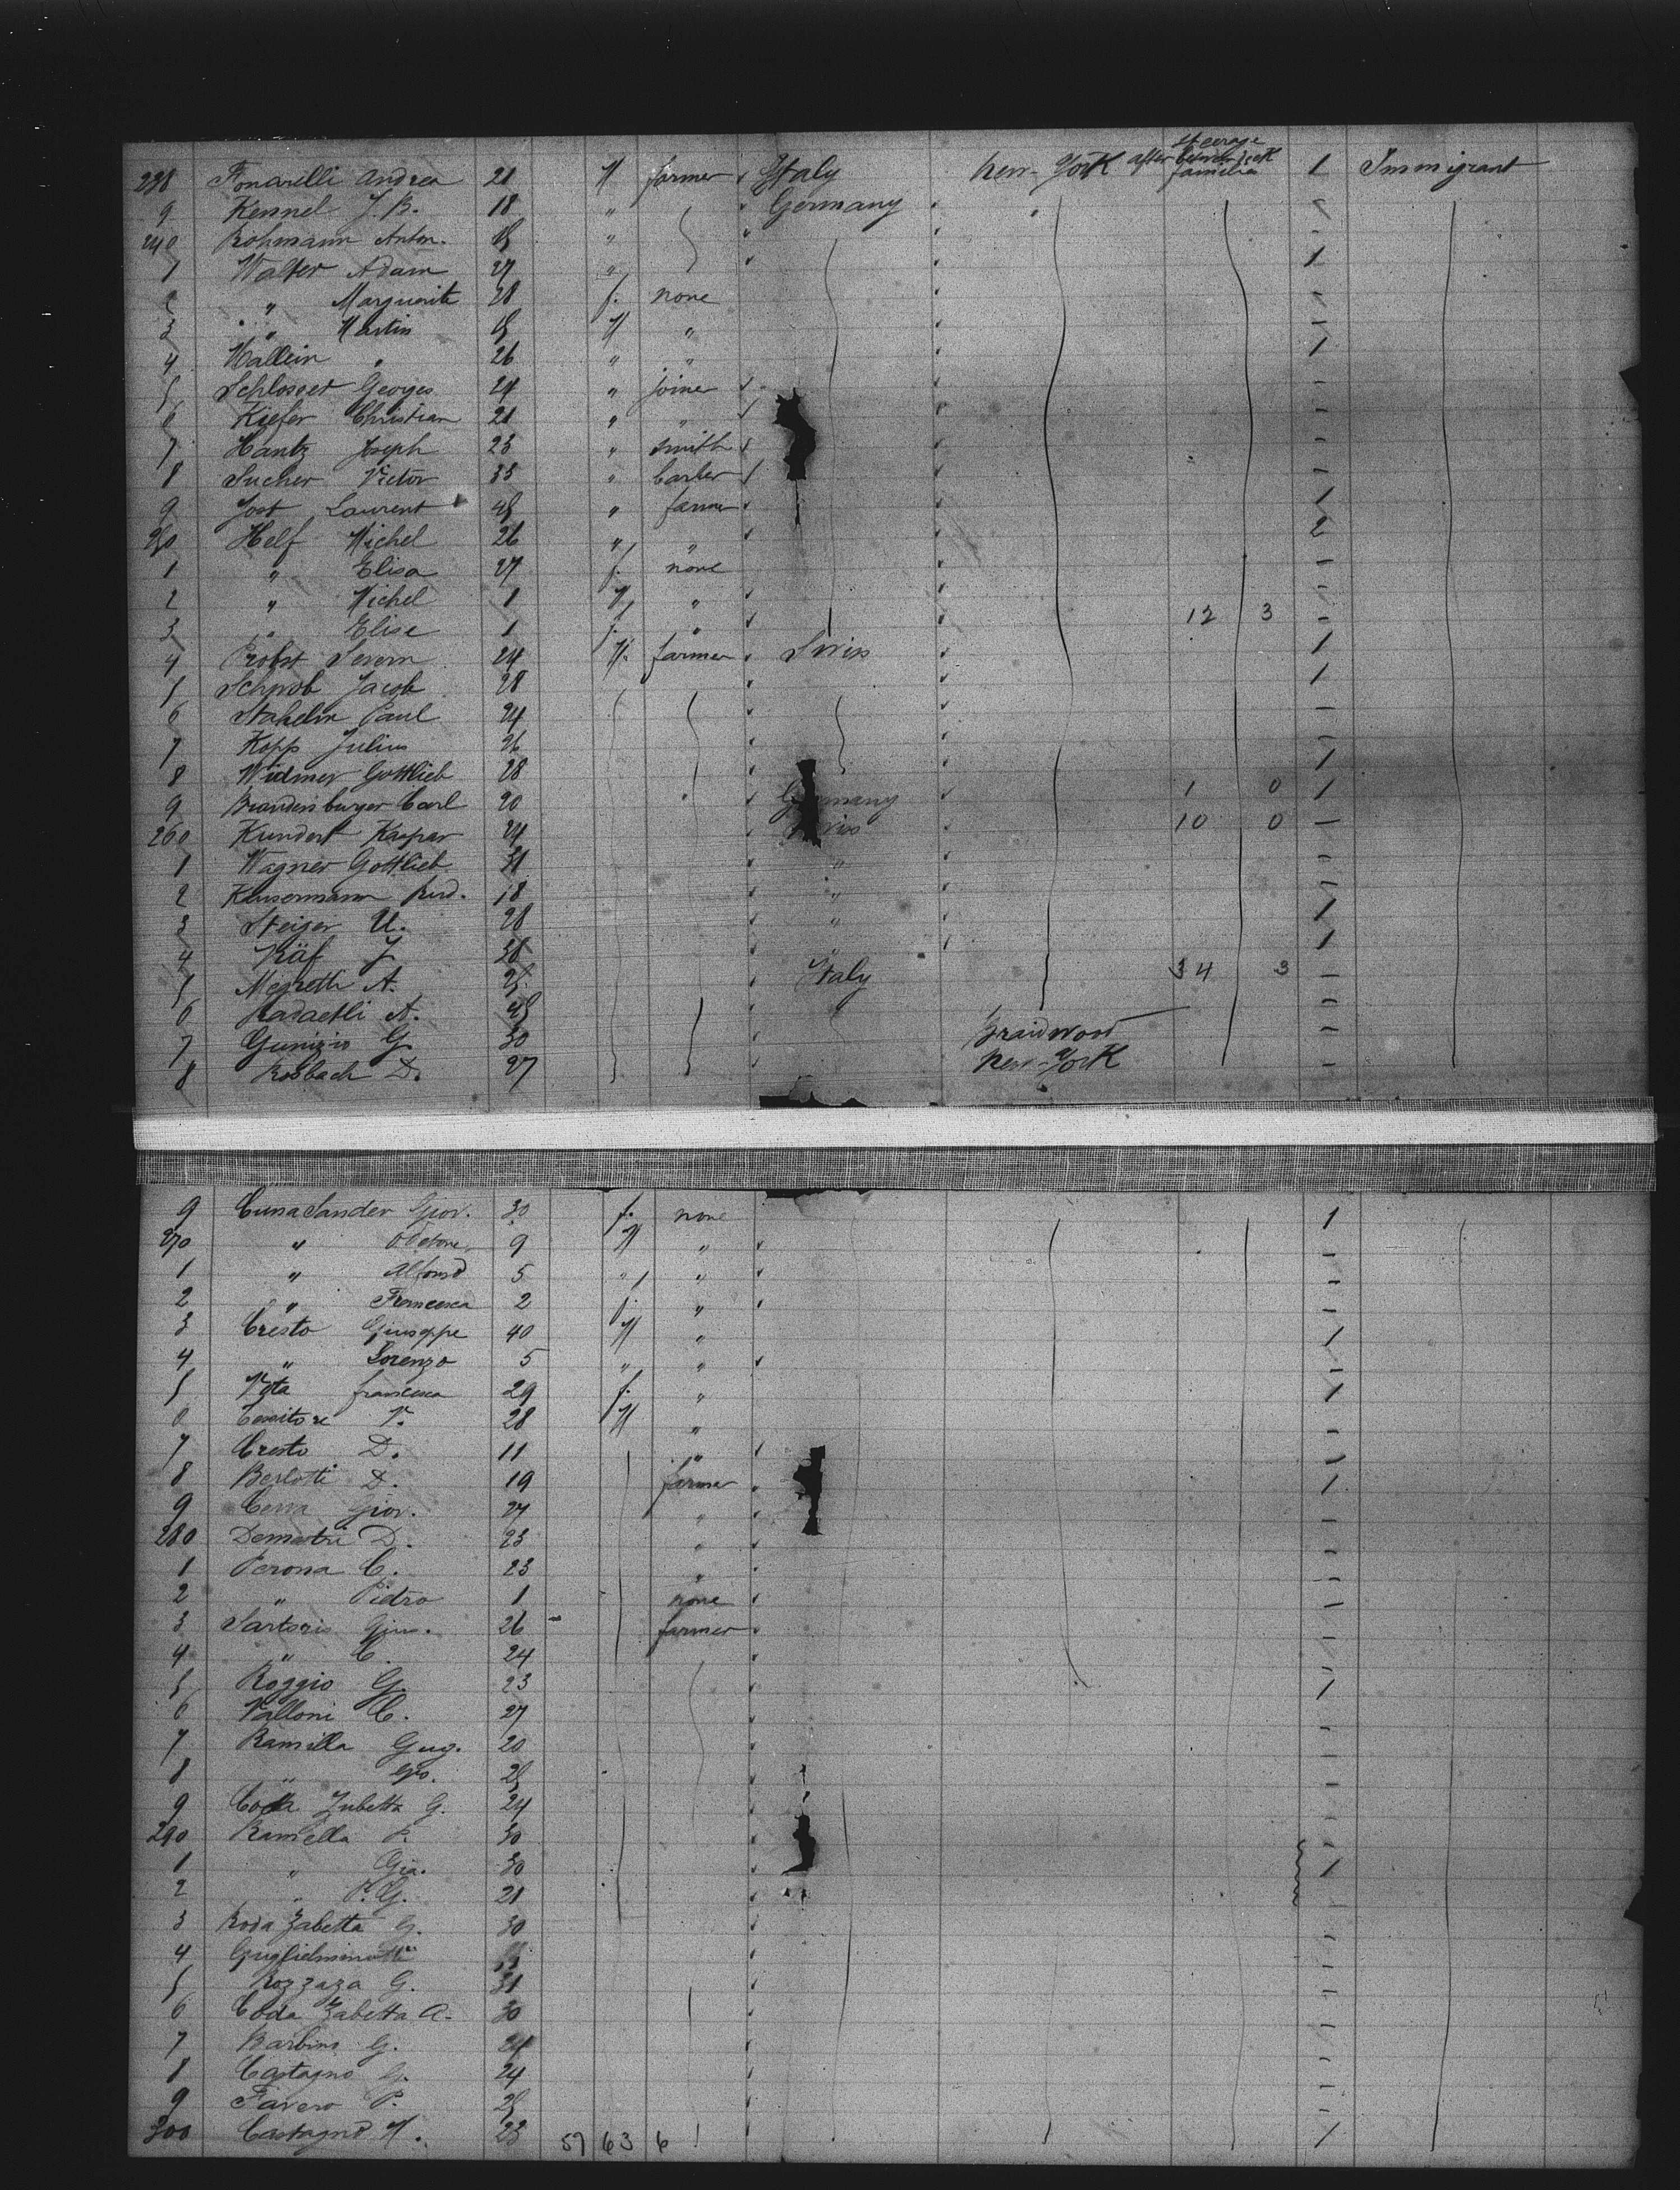 238 Fonarelli Andrea 21 M farmer Italy New-York after steerage between deck familia 1 Immigrant
9 Kennel J. B. 18 " Germany -
240 Rohmann Anton. 15 " -
1 Walter Adam 27 " 1
2 " Marguerite 28 f. none -
3 " Martin 15 M " -
4 Wallein " 26 " " 1
5 Schlosser Georges 24 " joiner -
6 Kiefer Christian 21 " " -
7 Hantz Joseph 23 " smith -
8 Sucher Victor 33 " barber -
9 Jost Laurent 45 " farmer 1
250 Helf Michel 26 " " 2
1 " Elisa 27 f. none -
2 " Michel 1 M " -
3 " Elise 1 f. " 12 3 -
4 Probst Severn 24 M. farmer Swiss 1
5 Schwob Jacob 28 1
6 Stahelin Paul 24 -
7 Kopp Julius 26 -
8 Widmer Gottlieb 28 1
9 Brandenburger Carl 20 Germany 1 0 1
260 Kundert Kaspar 24 Swiss 10 0 -
1 Wagner Gottlieb 31 " -
2 Klausermann Rud. 18 " -
3 Steiger U. 28 " 1
4 Käf J 38 " 1
5 Megretti A. 25 Italy 34 3 -
6 Radaelli A. 45 -
7 Gunizio G. 30 Braidwood -
8 Rosbach D. 27 New-York -
9 Cuna Sander Giov. 30 f. none 1
270 " 9 M " -
1 " Alfonso 5 " " -
2 " Francesca 2 f. " -
3 Cresto Giuseppe 40 M " 1
4 " Lorenzo 5 " " -
5 Vota francesca 29 f. " 1
6 V. 28 M " -
7 Cresto D. 11 " -
8 Berlotti D. 19 farmer 1
9 Cerra Giov. 27 " -
280 Demetri D. 23 " -
1 Perona C. 23 " -
2 " Pietro 1 none -
3 Sartoris Gius. 26 farmer -
4 " C. 24 -
5 Roggio G. 23 1
6 Valloni C. 27 -
7 Ramilla Gug. 20 -
8 " Gio. 25 -
9 Coda Zubetta G. 24 -
290 Ramella P. 30 -
1 " Gia. 30 1
2 " P. G. 21 -
3 Roda Zabetta G. 30 -
4 Guglielminotti -
5 Rozzaza G. 31 -
6 Coda Zabetta A. 30 -
7 Barbino G. 24 -
8 Castagno G. 24 -
9 Favero P. 25 -
300 Castagno M. 23 57 63 6 1